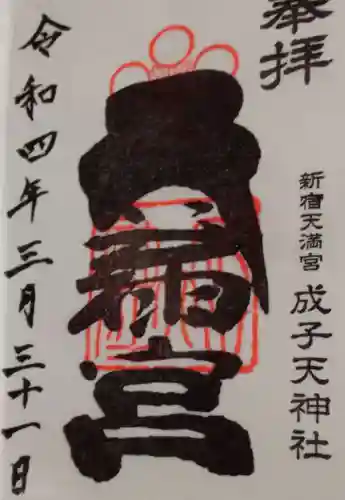 奉拝
新宿天満宮
成子天神社
天満宮
令和四年三月三十一日